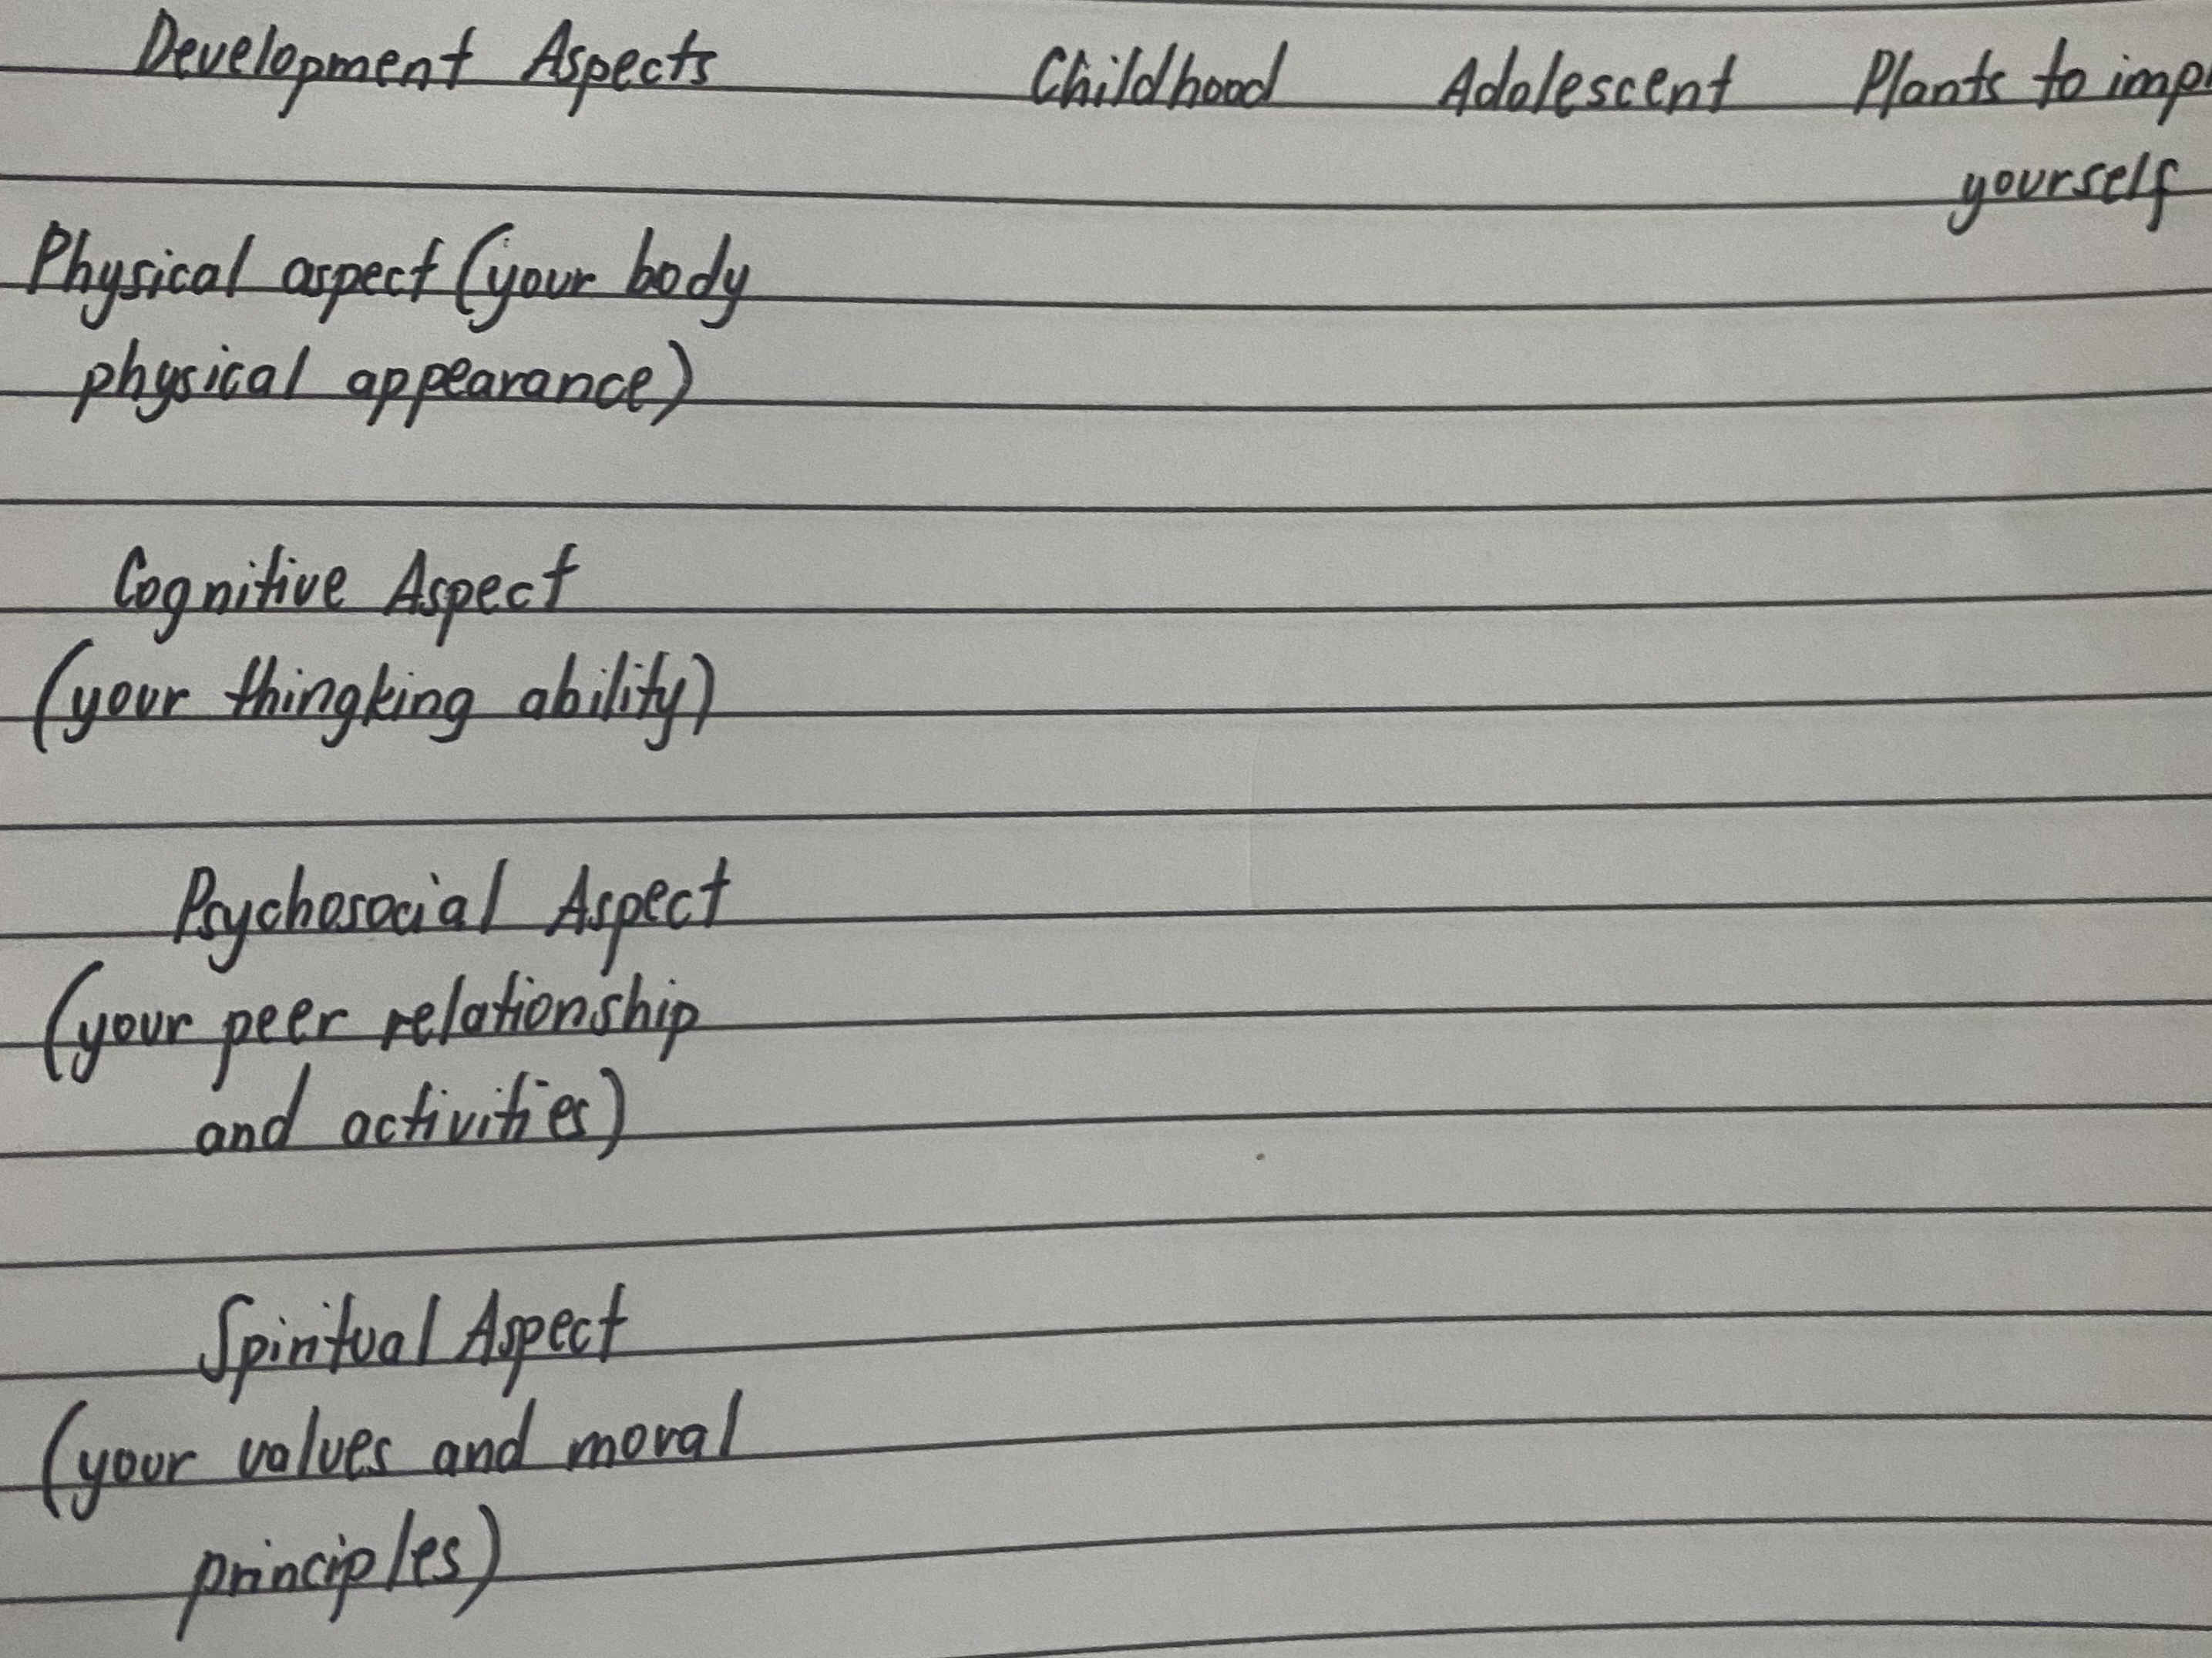 Development Aspects Childhood Adolescent Plants to imp
yourself
Physical aspect (your body
physical appearance)
Cognitive Aspect
(your thingking ability)
Psychosocial Aspect
(your peer relationship
and activities)
Spiritual Aspect
(your values and moral
principles)